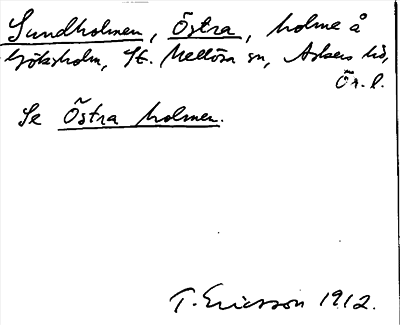 Sundholmen, Östra, holme å
Göksholm, St. Mellösa sn, Askers hd,
Ör. l.
Se Östra holmen.
T. Ericsson 1912.